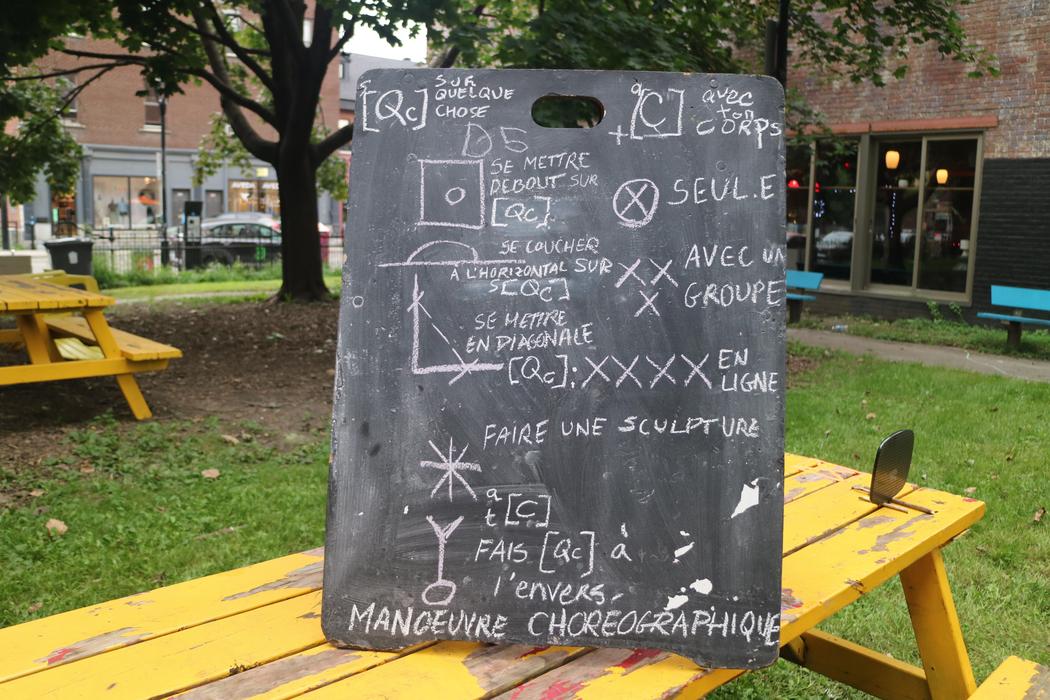 s[Qc] SUR
QUELQUE
CHOSE
a+[C] avec
ton
CORPS
D5
SE METTRE
DEBOUT SUR
[Qc]
SEUL.E
SE COUCHER
À L'HORIZONTAL SUR
s[Qc]
AVEC UN
GROUPE
SE METTRE
EN DIAGONALE
[Qc];
XXXX EN
LIGNE
FAIRE UNE SCULPTURE
a
t[C]
FAIS [Qc] à
l'envers.
MANOEUVRE CHOREOGRAPHIQUE